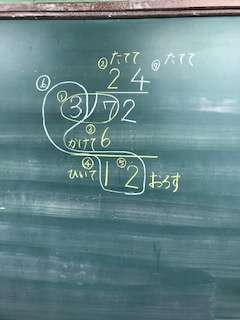 ② たてて ⑦ たてて
2 4
⑥ ① 3 7 2
かけて ③ 6
ひいて ④ 1 ⑤ 2 おろす